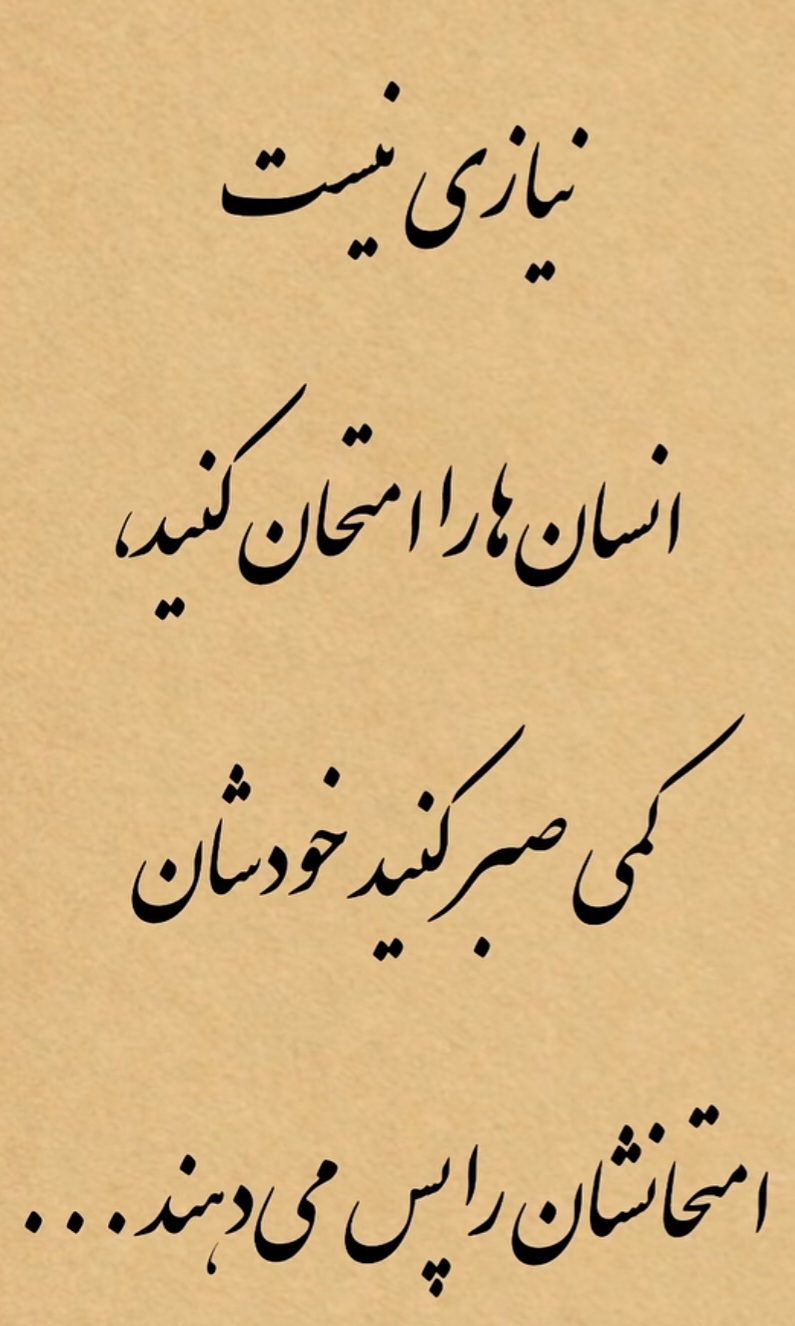 نیازی نیست
انسان ها را امتحان کنید،
کمی صبر کنید خودشان
امتحانشان را پس می دهند...